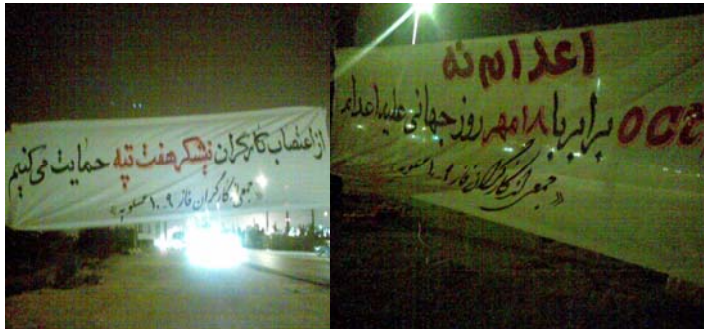 از اعتصاب کارگران نیشکر هفت تپه حمایت می کنیم
«جمعی از کارگران فاز ۹ـ۱۰ عسلویه»
اعدام نه
OCT برابر با ۱۸ مهر روز جهانی علیه اعدام
جمعی از کارگران فاز ۹ـ۱۰